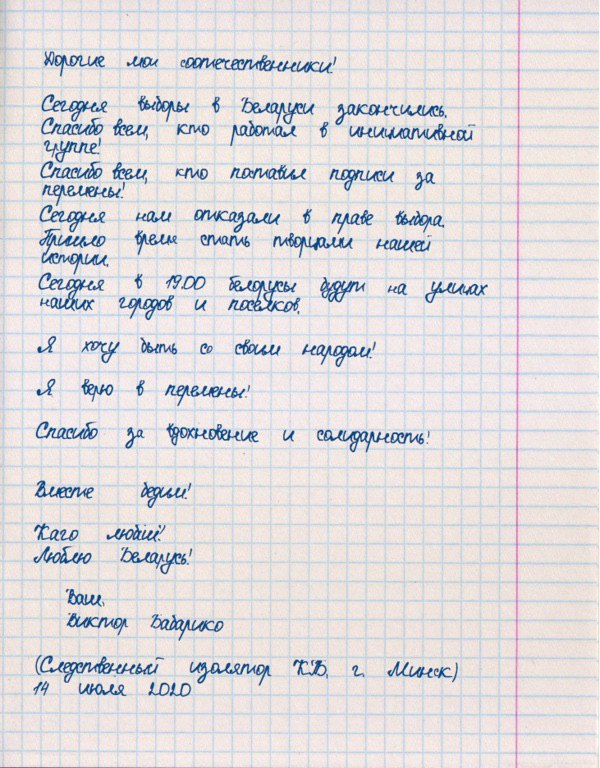 Дорогие мои соотечественники!
Сегодня выборы в Беларуси закончились.
Спасибо всем, кто работал в инициативной
группе!
Спасибо всем, кто поставил подписи за
перемены!
Сегодня нам отказали в праве выбора.
Пришло время стать творцами нашей
истории.
Сегодня в 19.00 белорусы будут на улицах
наших городов и посёлков.
Я хочу быть со своим народом!
Я верю в перемены!
Спасибо за вдохновение и солидарность!
Вместе
Люблю Беларусь!
Ваш,
Виктор Бабарико
(Следственный изолятор г. Минск)
14 июля 2020